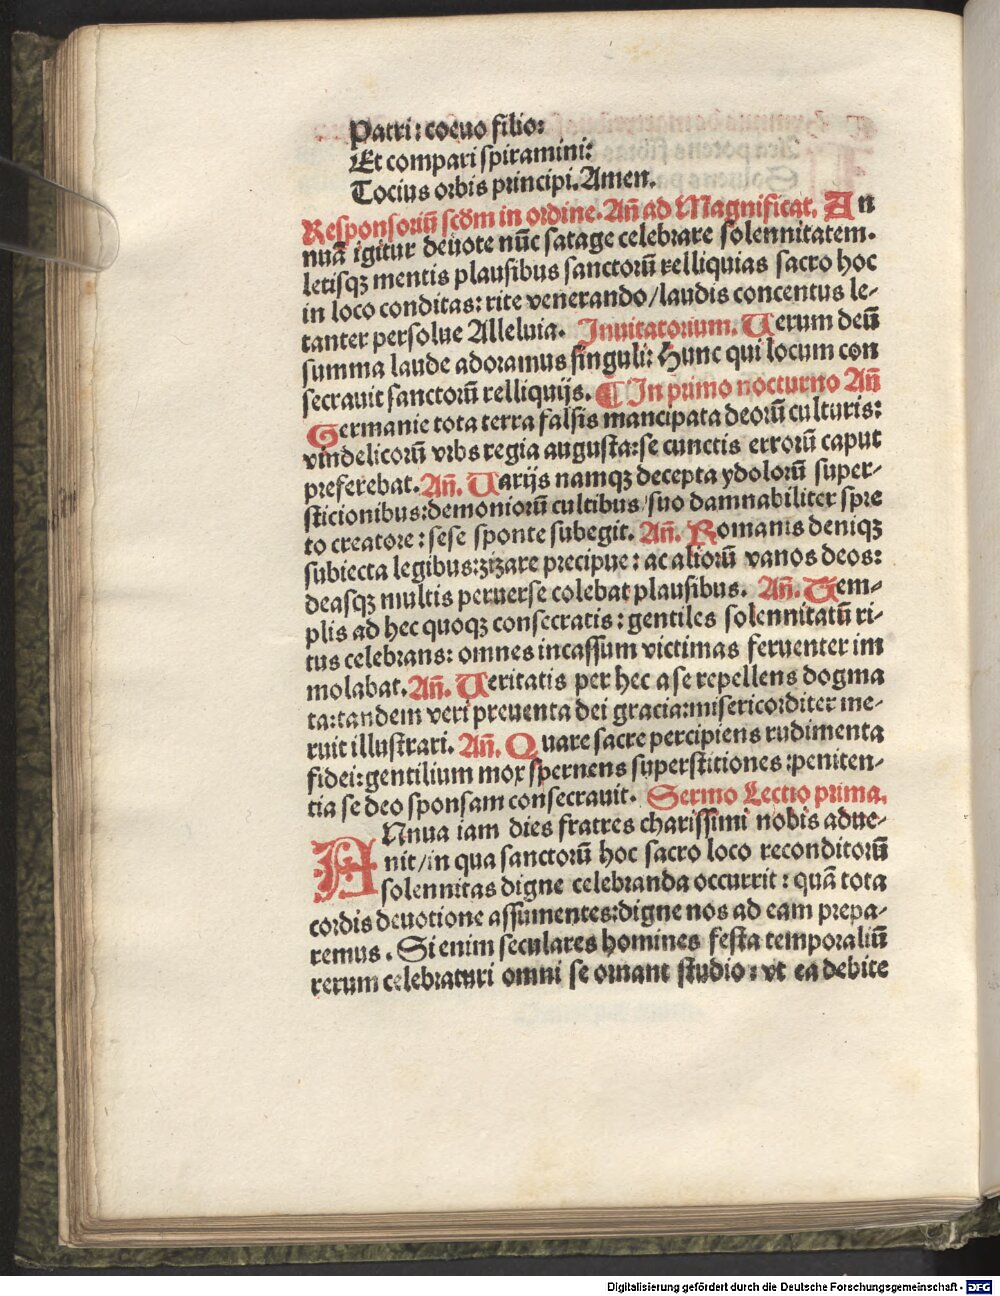 Patri: coeuo filio:
Et compari spiramini:
Tocius orbis principi. Amen.
Responsoriū scōm in ordine. Añ ad Magnificat. An
nuā igitur deuote nūc satage celebrare solennitatem.
letisqꝫ mentis plausibus sanctorū relliquias sacro hoc
in loco conditas: rite venerando/laudis concentus le-
tanter persolue Alleluia. Inuitatorium. Uerum deū
summa laude adoramus singuli: Hunc qui locum con
secrauit sanctorū relliquijs. ¶ In primo nocturno Añ
Germanie tota terra falsis mancipata deorū culturis:
vindelicorū vrbs regia augusta: se cunctis errorū caput
preferebat. Añ. Uarijs namqꝫ decepta ydolorū super-
sticionibus: demoniorū cultibus suo damnabiliter spre
to creatore: sese sponte subegit. Añ. Romanis deniqꝫ
subiecta legibus: zizare precipue: ac aliorū vanos deos:
deasqꝫ multis peruerse colebat plausibus. Añ. Tem-
plis ad hec quoqꝫ consecratis: gentiles solennitatū ri-
tus celebrans: omnes incassum victimas feruenter im
molabat. Añ. Ueritatis per hec a se repellens dogma
ta: tandem veri preuenta dei gracia: misericorditer me-
ruit illustrari. Añ. Quare sacre percipiens rudimenta
fidei: gentilium mox spernens superstitiones: peniten-
tia se deo sponsam consecrauit. Sermo Lectio prima.
ANnua iam dies fratres charissimi nobis adue-
nit/in qua sanctorū hoc sacro loco reconditorū
solennitas digne celebranda occurrit: quā tota
cordis deuotione assumentes: digne nos ad eam prepa-
remus. Si enim seculares homines festa temporaliū
rerum celebraturi omni se ornant studio: vt ea debite
Digitalisierung gefördert durch die Deutsche Forschungsgemeinschaft - DFG